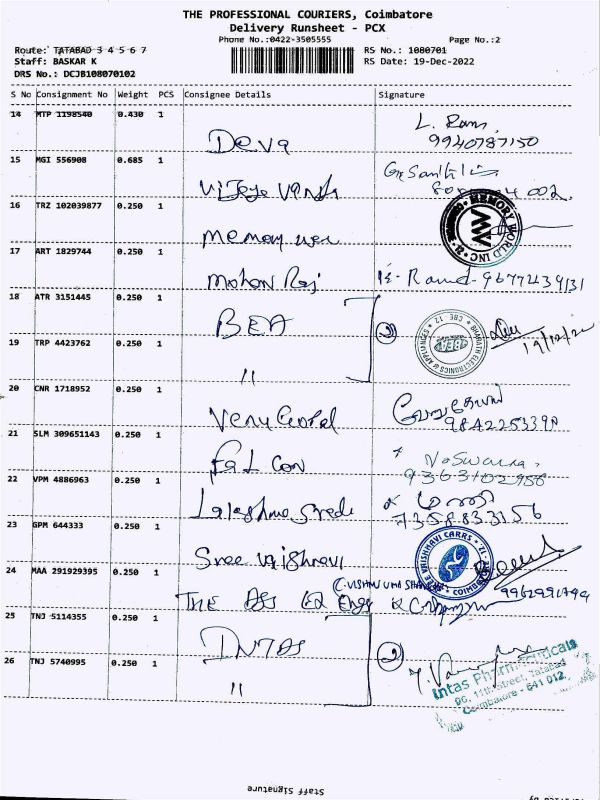 THE PROFESSIONAL COURIERS, Coimbatore
Delivery Runsheet - PCX
Phone No.:0422-3505555
Page No.:2
Route: TATABAD 3 4 5 6 7
RS No.: 1000701
Staff: BASKAR K
RS Date: 19-Dec-2022
DRS No.: DCJB108070102
S No Consignment No Weight PCS Consignee Details Signature
14 MTP 1198540 0.430 1 Deva L. Ram
9940787150
15 MGI 556908 0.685 1
16 TRZ 102039877 0.250 1 memory
MEMORY WORLD INC
17 ART 1829744 0.250 1 mohan Raj 9677239131
18 ATR 3151445 0.250 1 BEA 2
BHARATH ELECTRONICS & APPLIANCES * CBE. 12 *
BEA
19/12/22
19 TRP 4423762 0.250 1 "
20 CNR 1718952 0.250 1
21 SLM 309651143 0.250 1 Fal Con
9363102988
22 VPM 4886963 0.250 1
7358833156
23 GPM 644333 0.250 1 Sree Vaishnavi
SREE VAISHNAVI CARRS
24 MAA 291929395 0.250 1 THE
25 TNJ 5114355 0.250 1 INTAS 2
26 TNJ 5740995 0.250 1 "
Intas Pharmaceuticals
96, 11th Street, Tatabad
Coimbatore - 641 012.
Staff Signature